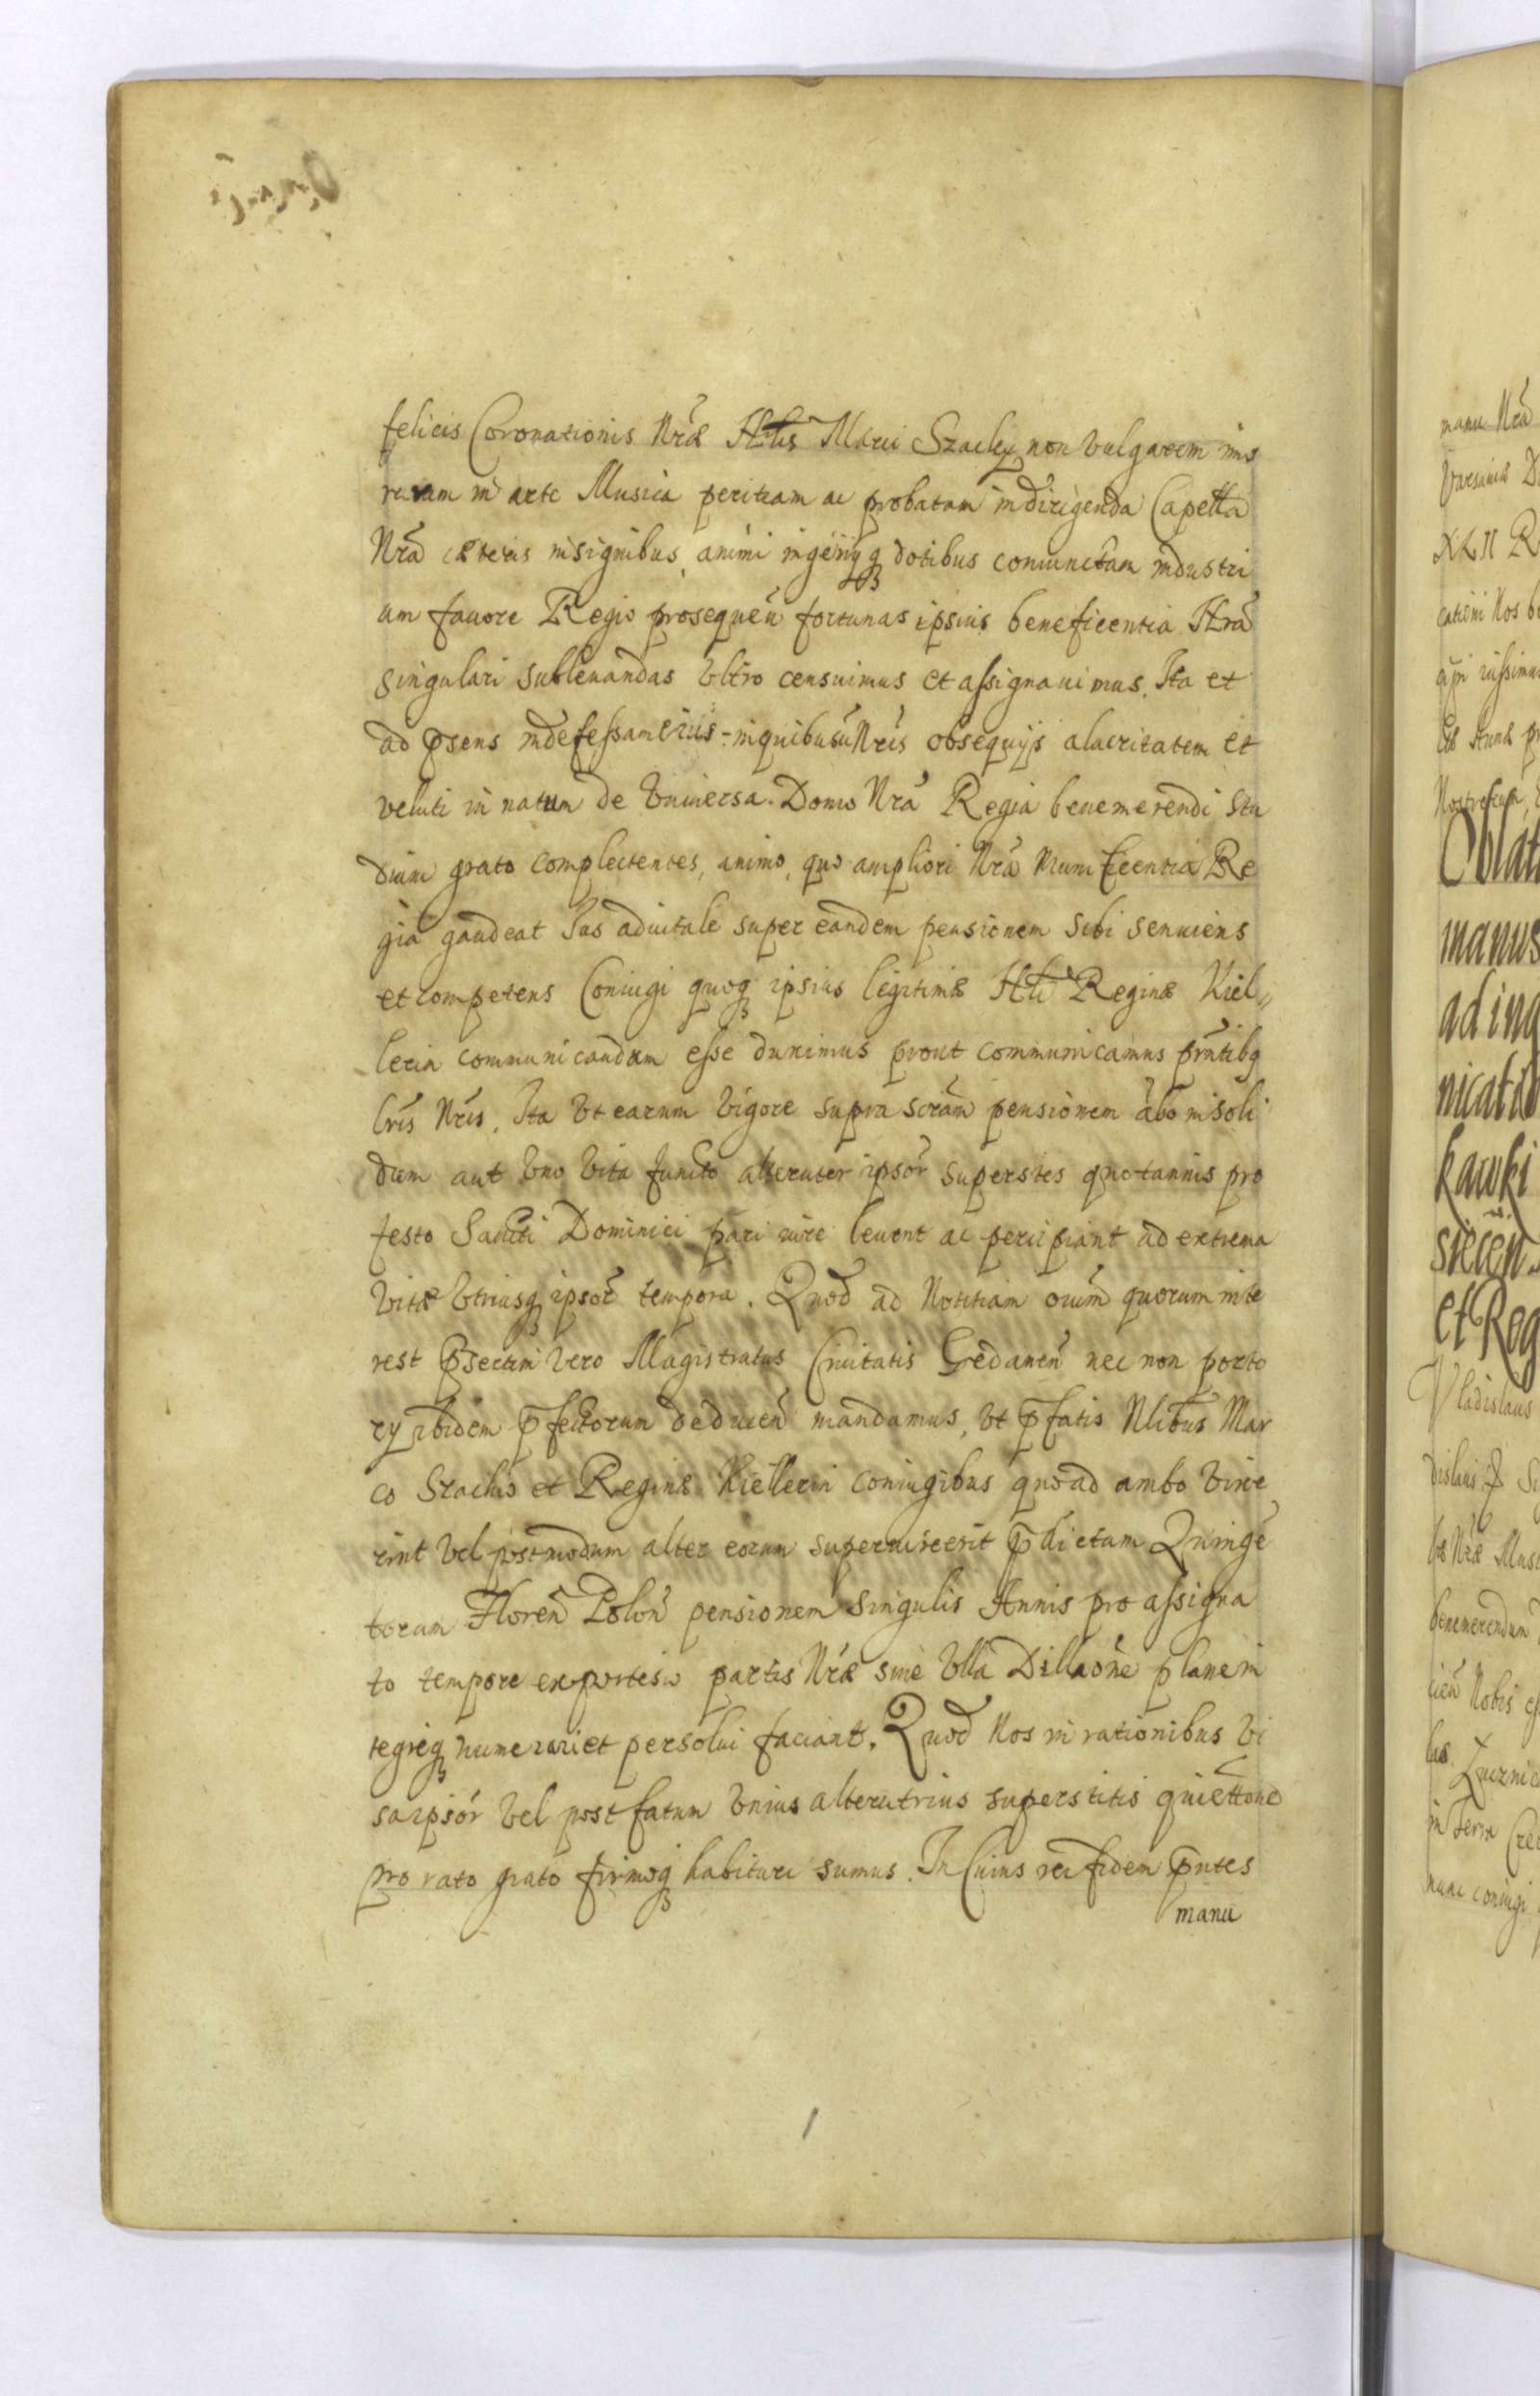 felicis Coronationis Nr̃æ Nlis Marci Szachy non vulgarem ius
in arte Musica peritiam ac probatam in dirigenda Capella
Nrã cæteris insignibus, animi ingeniiq dotibus coniunctam industri
am favore Regio prosequeñ fortunas ipsius beneficentia Nrã
singulari sublevandas Ultro censuimus et assignavimus. Ita et
ad p̃sens indefessam eius in quibusũ Nris obsequijs alacritatem et
veluti in natum de Universa Domo Nrã Regia benemerendi Stu
dium grato complectentes, animo, quo ampliori Nrã Munificentia Re
gia gaudeat Jus advitale super eandem pensionem Sibi Serviens
et competens Coniugi quoq ipsius legitimæ Nli Reginæ Kiel„
lerin communicandum esse duximus prout communicamus prñtibq
Lrĩs Nrĩs. Ita Vt earum Vigore supra scrãm pensionem ãbo in soli
dum aut Uno Vita functo alteruter ipsor̃ superstes quotannis pro
festo Sancti Dominici pari iure levent ac percipiant ad extrema
Vitæ Vtriusq ipsor̃ tempora. Quod ad Notitiam oium̃ quorum inte
rest p̃sertim Vero Magistratus Civitatis Gedaneñ nec non porto
rÿ ibidem p̃fectorum deduceñ mandamus, Vt p̃fatis Nlibus Mar
co Szachio et Reginæ Kiellerin coniugibus quoad ambo Vixe
rint Vel postmodum alter eorum supervixerit p̃dictam Quingẽ
torum Floreñ Poloñ pensionem Singulis Annis pro assigna
to tempore ex portorio partis Nræ sine Ulla Dillaõne plane in
tegreq numerari et persolvi faciant. Quod Nos in rationibus Vi
sa ipsor̃ Vel post fatum Unius alterutrius superstitis quiettaõne
pro rato grato firmoq habituri sumus. In Cuius rei fidem p̃ntes
manu
1
manu Nrã
Varsaviæ
XLII R
Nostrorum
Oblat
manus
ad ing
nicatio
kawki
sicẽn
et Reg
Vladislaus
dislaus
benemerendum
cieñ Nobis
in terra
nunc coniugi